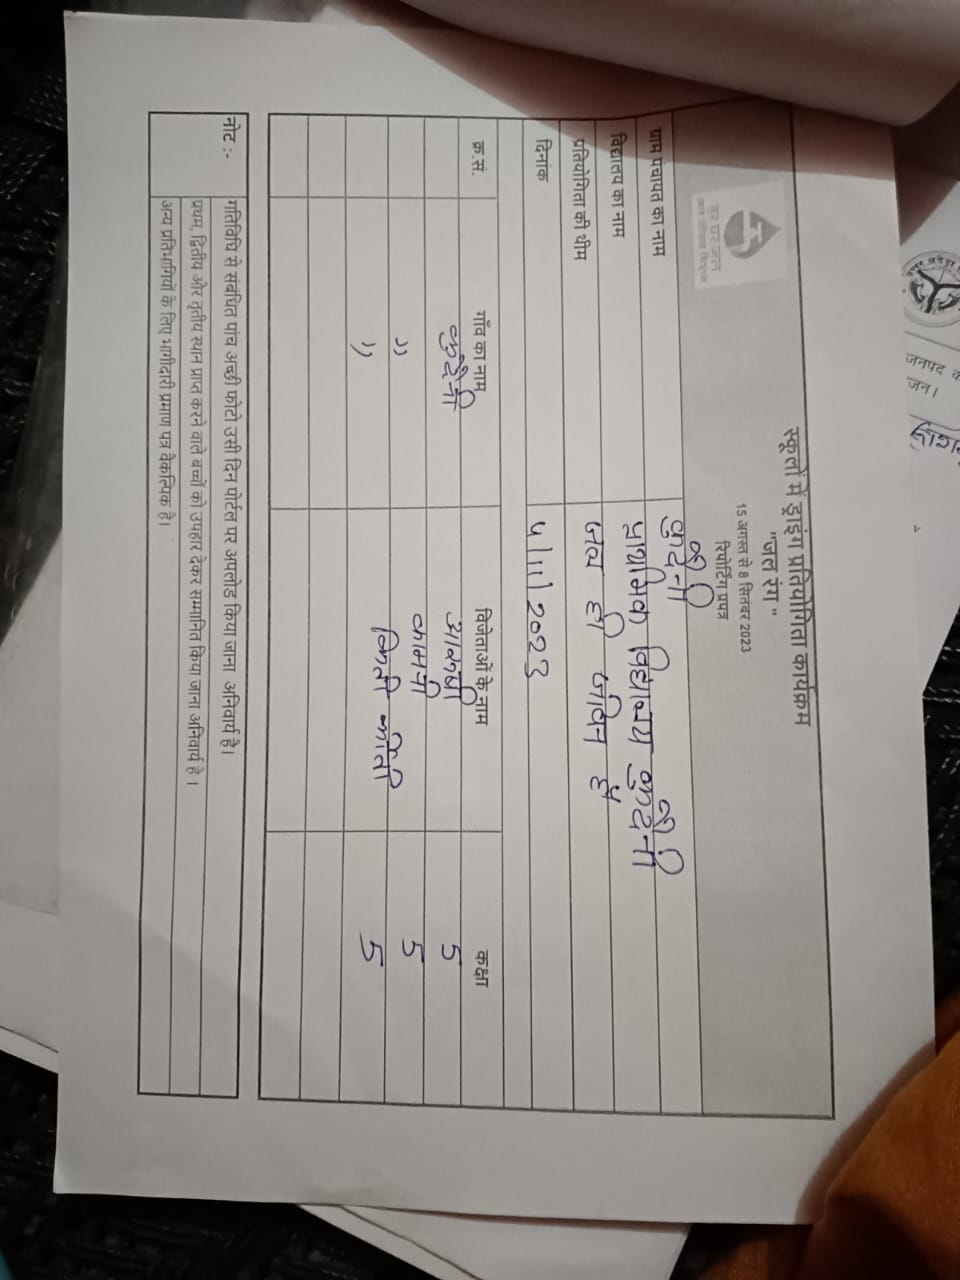 हर घर जल
जल जीवन मिशन
स्कूलों में ड्राइंग प्रतियोगिता कार्यक्रम
"जल रंग"
15 अगस्त से 8 सितंबर 2023
रिपोर्टिंग प्रपत्र
ग्राम पंचायत का नाम
विद्यालय का नाम प्राथमिक विद्यालय
प्रतियोगिता की थीम जल ही जीवन है
दिनांक 4/11/2023
क्र.सं. गाँव का नाम विजेताओं के नाम कक्षा
5
" 5
" 5
नोट :- गतिविधि से संबंधित पांच अच्छी फोटो उसी दिन पोर्टल पर अपलोड किया जाना अनिवार्य है।
प्रथम, द्वितीय और तृतीय स्थान प्राप्त करने वाले बच्चों को उपहार देकर सम्मानित किया जाना अनिवार्य है।
अन्य प्रतिभागियों के लिए भागीदारी प्रमाण पत्र वैकल्पिक है।
जनपद
जन।